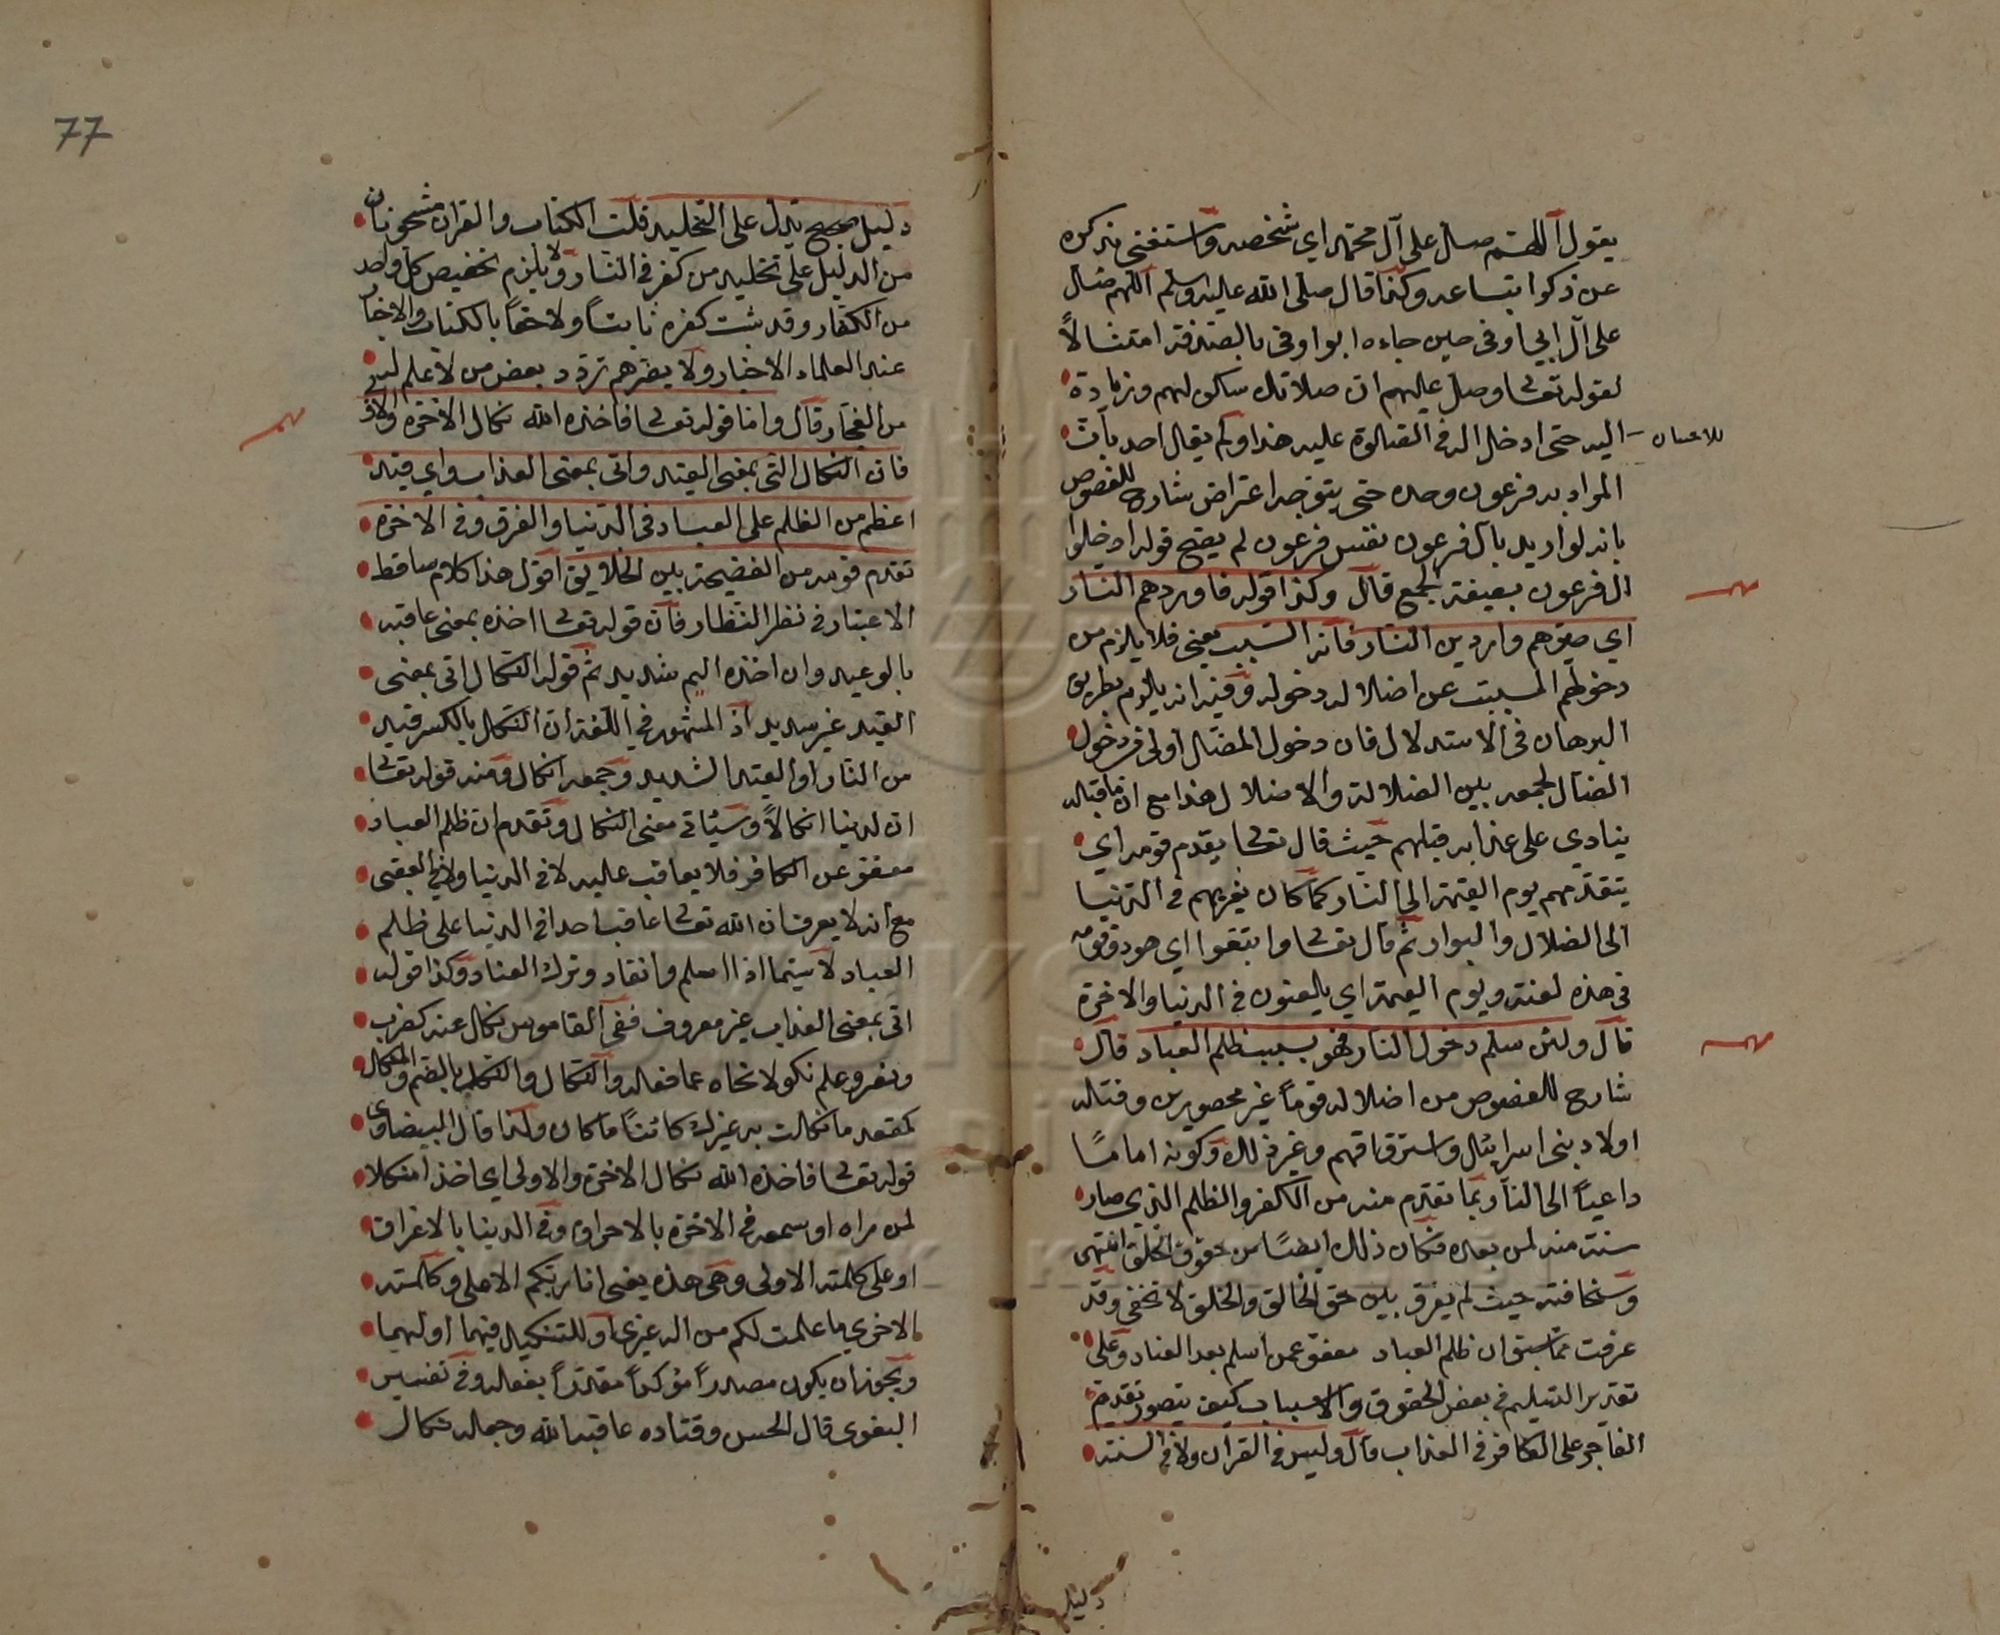 يقول اللهم صل على آل محمد اي شخصه واستغنى بذكره
عن ذكر اتباعه وكما قال صلى الله عليه وسلم اللهم صل
على آل ابي اوفى حين جاءه ابو اوفى بالصدقة امتثالاً
لقوله تعا وصل عليهم ان صلاتك سكن لهم وزيادة
للاحسان
اليه حتى ادخل اله في الصلوة عليه هذا ولم يقل احد بان
المراد به فرعون وحده حتى يتوجه اعتراض شارح للفصوص
بانه لو اريد بآل فرعون نفس فرعون لم يصح قوله ادخلوا
ال فرعون بصيغة الجمع قال وكذا قوله فاوردهم النار
اي صيرهم واردين النار فانه السبب يعنى فلا يلزم من
دخولهم المسبب عن اضلاله دخوله وفيه انه يلزم بطريق
البرهان في الاستدلال فان دخول المضل اولى من دخول
الضال لجمعه بين الضلالة والاضلال هذا مع ان ما قبله
ينادي على عذابه قبلهم حيث قال تعا يقدم قومه اي
يتقدمهم يوم القيمة الى النار كما كان يغريهم في الدنيا
الى الضلال والبوار ثم قال تعا واتبعوا اي هو وقومه
في هذه لعنة ويوم القيمة اي يلعنون في الدنيا والاخرة
قال ولئن سلم دخول النار فهو بسبب ظلم العباد قال
شارح للفصوص من اضلاله قوماً غير محصورين وقتله
اولاد بنى اسرائيل واسترقاقهم وغير ذلك وكونه اماما
داعياً الى النار بما تقدم منه من الكفر والظلم الذي صار
سنة منه لمن بعده فكان ذلك ايضا من حقوق الخلق انتهى
وسخافته حيث لم يفرق بين حق الخالق والخلق لا تخفى وقد
عرفت مما سبق ان ظلم العباد معفو عمن اسلم بعد العناد وعلى
تقدير التسليم في بعض الحقوق والاسباب كيف يتصور تقديم
الفاجر على الكافر في العذاب قال وليس في القرآن ولا في السنة
دليل
77
دليل صحيح يدل على التخليد قلت الكتاب والقرآن مشحونان
من الدليل على تخليد من كفر في النار ولا يلزم تخصيص كل واحد
من الكفار وقد ثبت كفره ثابتاً ولاحقاً بالكتاب والاخبار
عند العلماء الاخيار ولا يضرهم تردد بعض من لا علم له
من الفجار قال واما قوله تعا فاخذه الله نكال الاخرة والاولى
فان النكال اتى بمعنى القيد واتى بمعنى العذاب واي قيد
اعظم من الظلم على العباد في الدنيا والغرق وفي الاخرة
تقدم قومه من الفضيحة بين الخلايق اقول هذا كلام ساقط
الاعتبار في نظر النظار فان قوله تعا اخذه بمعنى عاقبه
بالوعيد وان اخذه اليم شديد ثم قوله النكال اتى بمعنى
القيد غير سديد اذ المشهور في اللغة ان النكل بالكسر قيد
من النار او القيد الشديد وجمعه انكال ومنه قوله تعا
ان لدينا انكالاً وسيأتي معنى النكال وتقدم ان ظلم العباد
معفو عن الكافر فلا يعاقب عليه لا في الدنيا ولا في العقبى
مع انه لا يعرف ان الله تعا عاقب احدا في الدنيا على ظلم
العباد لا سيما اذا اسلم وانقاد وترك العناد وكذا قوله
اتى بمعنى العذاب غير معروف ففي القاموس نكل عنه كضرب
ونصر وعلم نكولا نحاه عما فعله والنكال والنكلة بالضم والمنكل
كمقعد ما نكلت به غيرك كائنا ما كان وكذا قال البيضاوي
قوله تعا فاخذه الله نكال الاخرة والاولى اي اخذا منكلا
لمن راه او سمعه في الاخرة بالاحراق وفي الدنيا بالاغراق
او على كلمته الاولى وهي هذه يعنى انا ربكم الاعلى وكلمته
الاخرى ما علمت لكم من اله غيري او للتنكيل فيهما او لهما
ويجوز ان يكون مصدراً مؤكداً مقدراً بفعله وفي تفسير
البغوى قال الحسن وقتاده عاقبه الله وجعله نكال